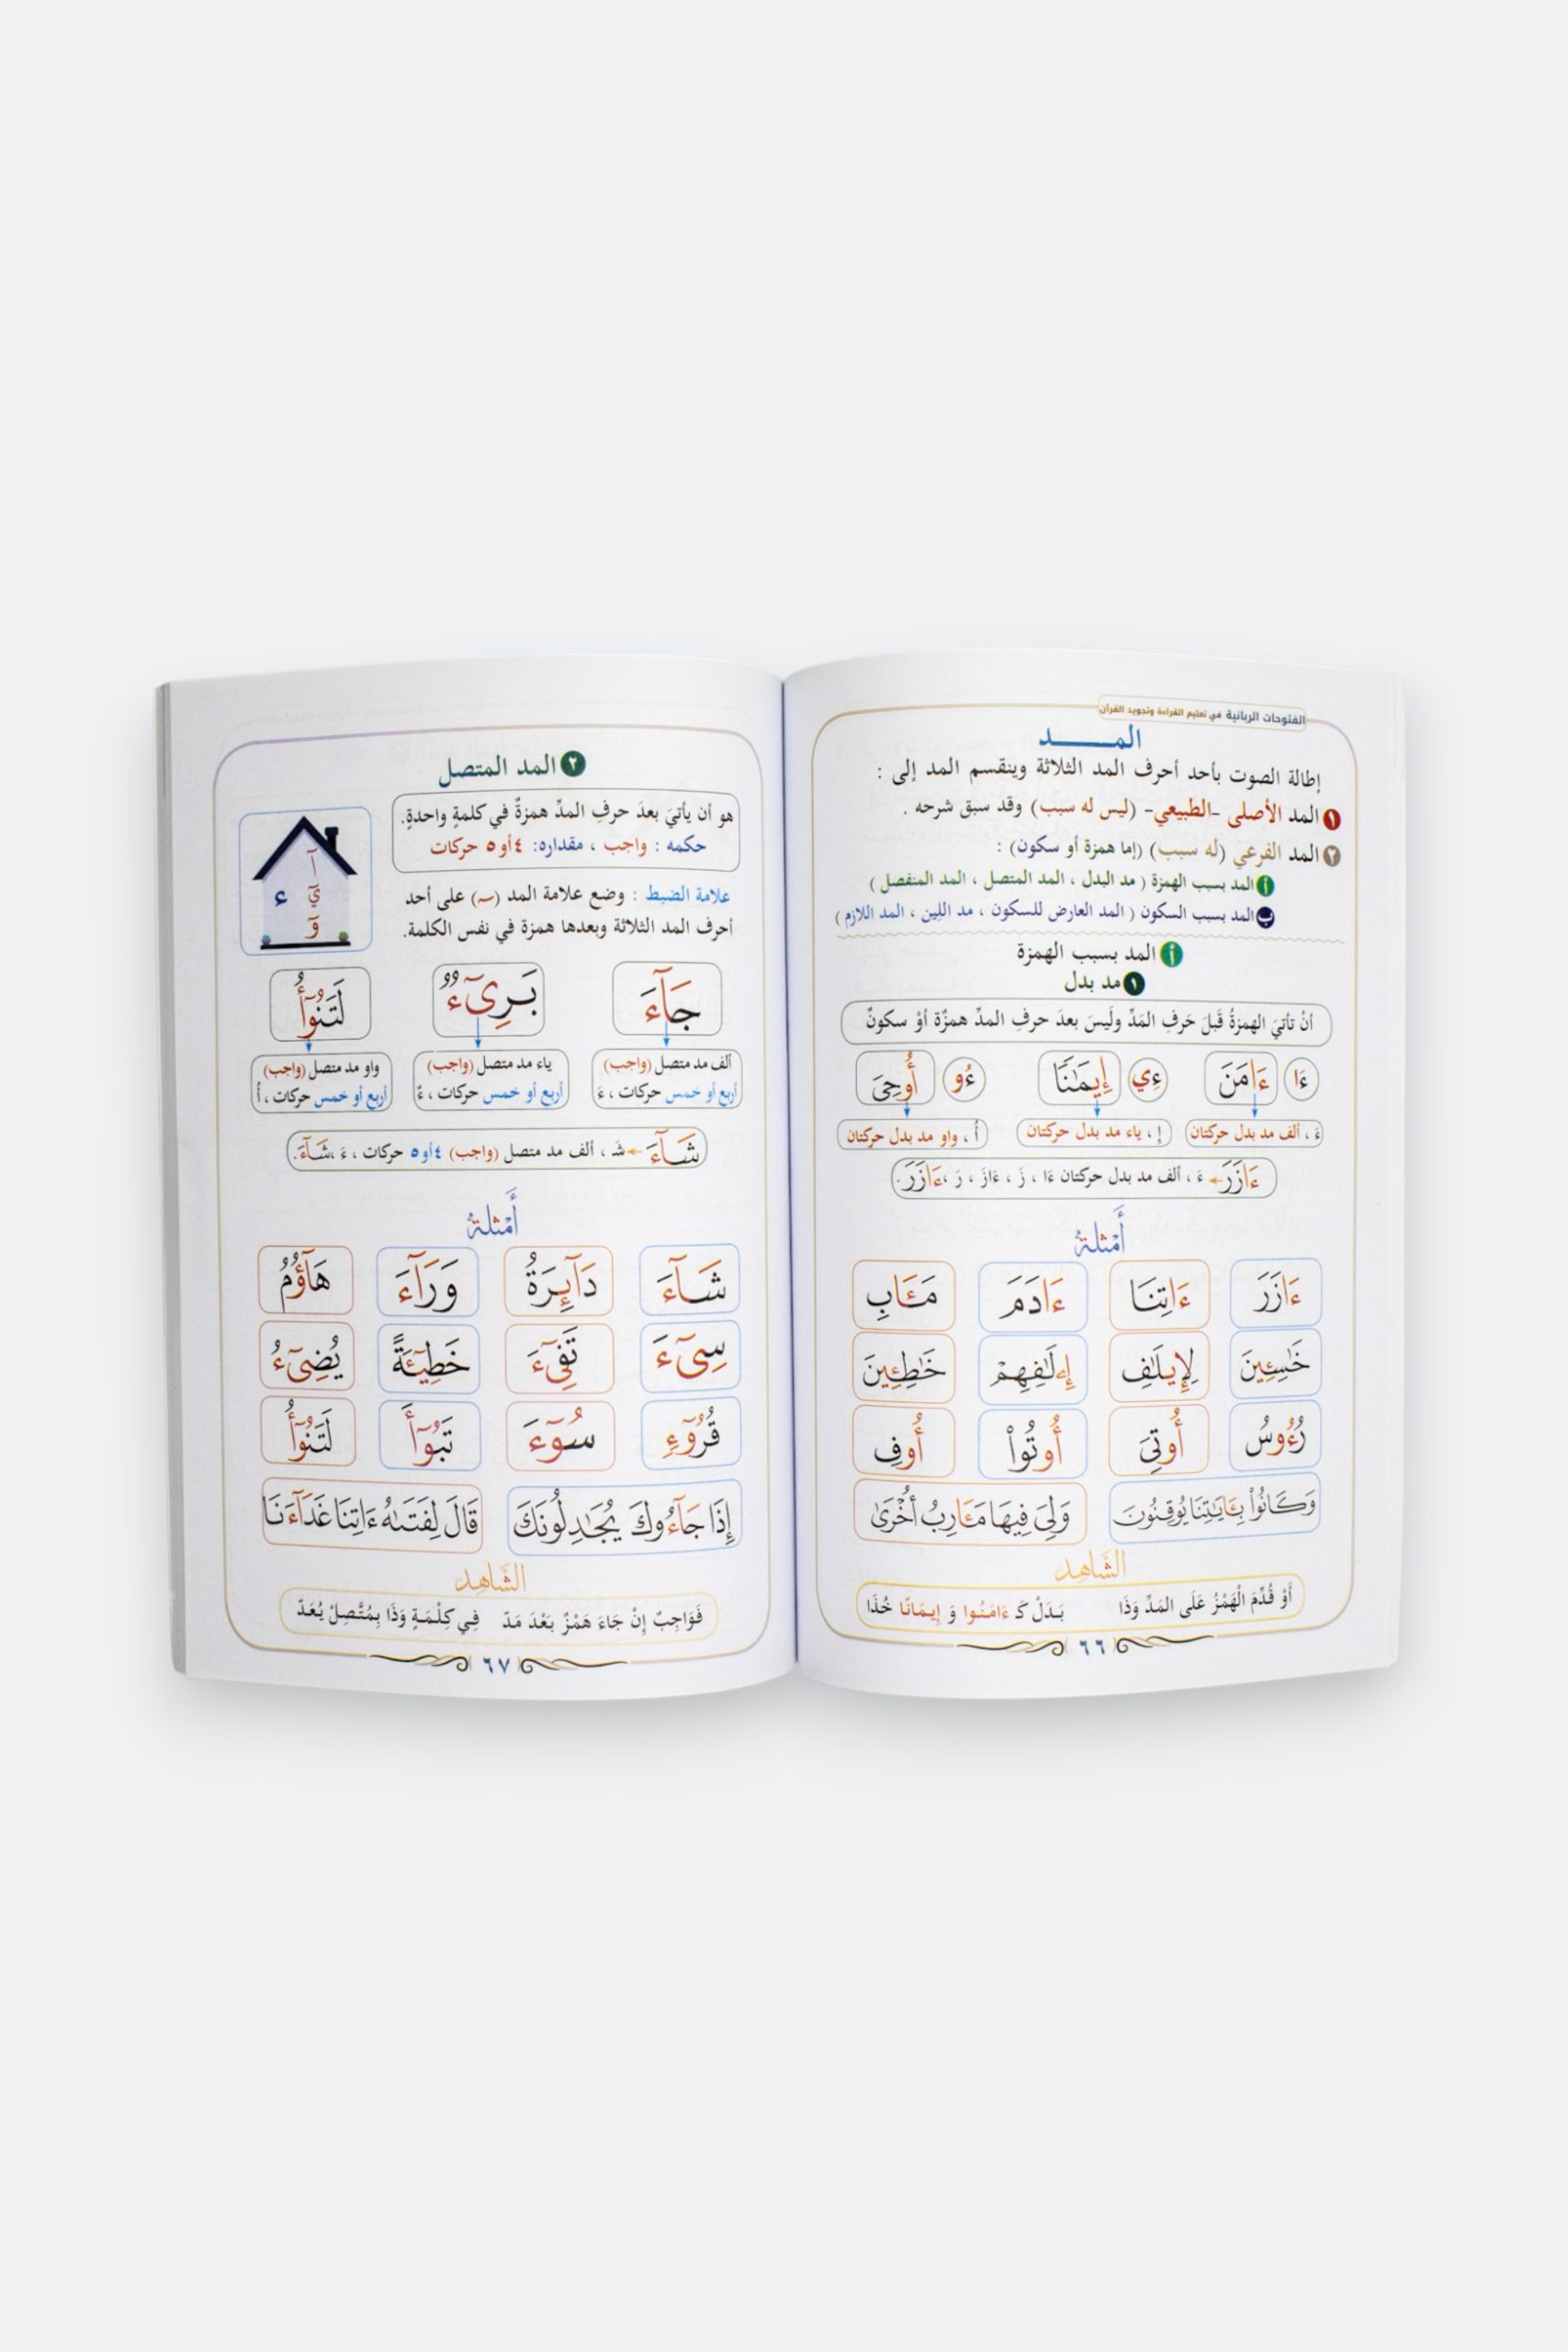 الفتوحات الربانية في تعليم القراءة وتجويد القرآن
المـــــد
إطالة الصوت بأحد أحرف المد الثلاثة وينقسم المد إلى :
١ المد الأصلى -الطبيعي- (ليس له سبب) وقد سبق شرحه .
٢ المد الفرعي (له سبب) (إما همزة أو سكون) :
أ المد بسبب الهمزة ( مد البدل ، المد المتصل ، المد المنفصل )
ب المد بسبب السكون ( المد العارض للسكون ، مد اللين ، المد اللازم )
أ المد بسبب الهمزة
١ مد بدل
أنْ تأتيَ الهمزةُ قَبلَ حَرفِ المَدِّ ولَيسَ بعدَ حرفِ المدِّ همزةٌ أوْ سكونٌ
ءَا ءَامَنَ ءِي إِيمَٰنًا ءُو أُوحِىَ
ءَ ، ألف مد بدل حركتان إ ، ياء مد بدل حركتان أُ ، واو مد بدل حركتان
ءَازَرَ ءَ ، ألف مد بدل حركتان ءَا ، زَ ، ءَازَ ، رَ ،ءَازَرَ.
أَمْثلة
ءَازَرَ ءَاتِنَا ءَادَمَ مَـَٔابِ
خَٰسِـِٔينَ لِإِيلَٰفِ إِۦلَٰفِهِمْ خَٰطِـِٔينَ
رُءُوسُ أُوتِىَ أُوتُوا۟ أُوفِ
وَكَانُوا۟ بِـَٔايَٰتِنَا يُوقِنُونَ وَلِىَ فِيهَا مَـَٔارِبُ أُخْرَىٰ
الشَّاهِد
أَوْ قُدِّمَ الْهَمْزُ عَلَى المَدِّ وَذَا بَدَلْ كَ ءَامَنُوا وَ إِيمَانًا خُذَا
٦٦
٢ المد المتصل
هو أن يأتيَ بعدَ حرفِ المدِّ همزةٌ في كلمةٍ واحدةٍ.
حكمه : واجب ، مقداره: ٤ أو ٥ حركات
علامة الضبط : وضع علامة المد (ـٓ) على أحد
أحرف المد الثلاثة وبعدها همزة في نفس الكلمة.
آ
يٓ ء
وٓ
جَآءَ بَرِىٓءٌ لَتَنُوٓأُ
ألف مد متصل (واجب) ياء مد متصل (واجب) واو مد متصل (واجب)
أربع أو خمس حركات ، ءَ أربع أو خمس حركات ، ءٌ أربع أو خمس حركات ، أُ
شَآءَ شَـ ، ألف مد متصل (واجب) ٤ أو ٥ حركات ، ءَ ،شَآءَ.
أَمْثلة
شَآءَ دَآئِرَةٌ وَرَآءَ هَآؤُمُ
سِىٓءَ تَفِىٓءَ خَطِيٓـَٔةً يُضِىٓءُ
قُرُوٓءٍ سُوٓءَ تَبُوٓأَ لَتَنُوٓأُ
إِذَا جَآءُوكَ يُجَٰدِلُونَكَ قَالَ لِفَتَىٰهُ ءَاتِنَا غَدَآءَنَا
الشَّاهِد
فَوَاجِبٌ إِنْ جَاءَ هَمْزٌ بَعْدَ مَدّ فِي كِلْمَةٍ وَذَا بِمُتَّصِلْ يُعَدّ
٦٧